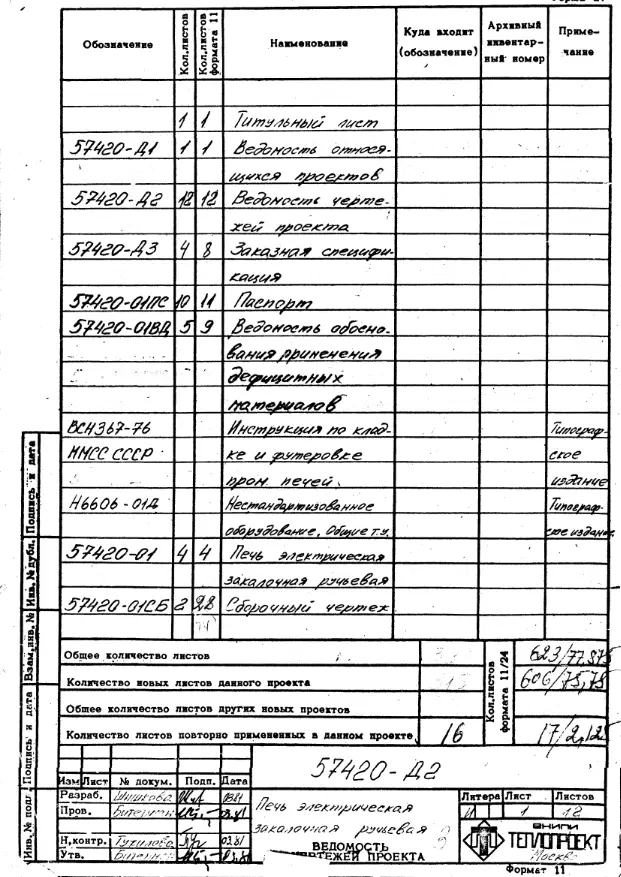 Обозначение Кол.листов Кол.листов формата 11 Наименование Куда входит (обозначение) Архивный инвентарный номер Примечание
1 1 Титульный лист
57420-Д1 1 1 Ведомость относя-
щихся проектов
57420-Д2 12 12 Ведомость черте-
жей проекта
57420-Д3 4 8 Заказная специфи-
кация
57420-01ПС 10 11 Паспорт
57420-01ВД 5 9 Ведомость обосно-
вания применения
дефицитных
материалов
ВСН367-76 Инструкция по клад- Типограф-
ММСС СССР ке и футеровке ское
пром. печей. издание
Н6606-01Д Нестандартизованное Типограф-
оборудование. Общие т.у. ское издание
57420-01 4 4 Печь электрическая
закалочная ручьевая
57420-01СБ 2 28 Сборочный чертеж
Общее количество листов
Количество новых листов данного проекта
Общее количество листов других новых проектов
Количество листов повторно примененных в данном проекте 16
Кол.листов формата 11/24
623/77,875
606/75,75
17/2,125
Взам.инв.№ Инв.№дубл. Подпись и дата
Инв.№ подл. Подпись и дата
57420-Д2
Изм Лист № докум. Подп. Дата
Разраб. Шишкова
Пров.
Н.контр.
Утв.
Печь электрическая
закалочная ручьевая
ВЕДОМОСТЬ
ЧЕРТЕЖЕЙ ПРОЕКТА
Литера Лист Листов
1 12
ВНИПИ
ТЕПЛОПРОЕКТ
Москва
Формат 11